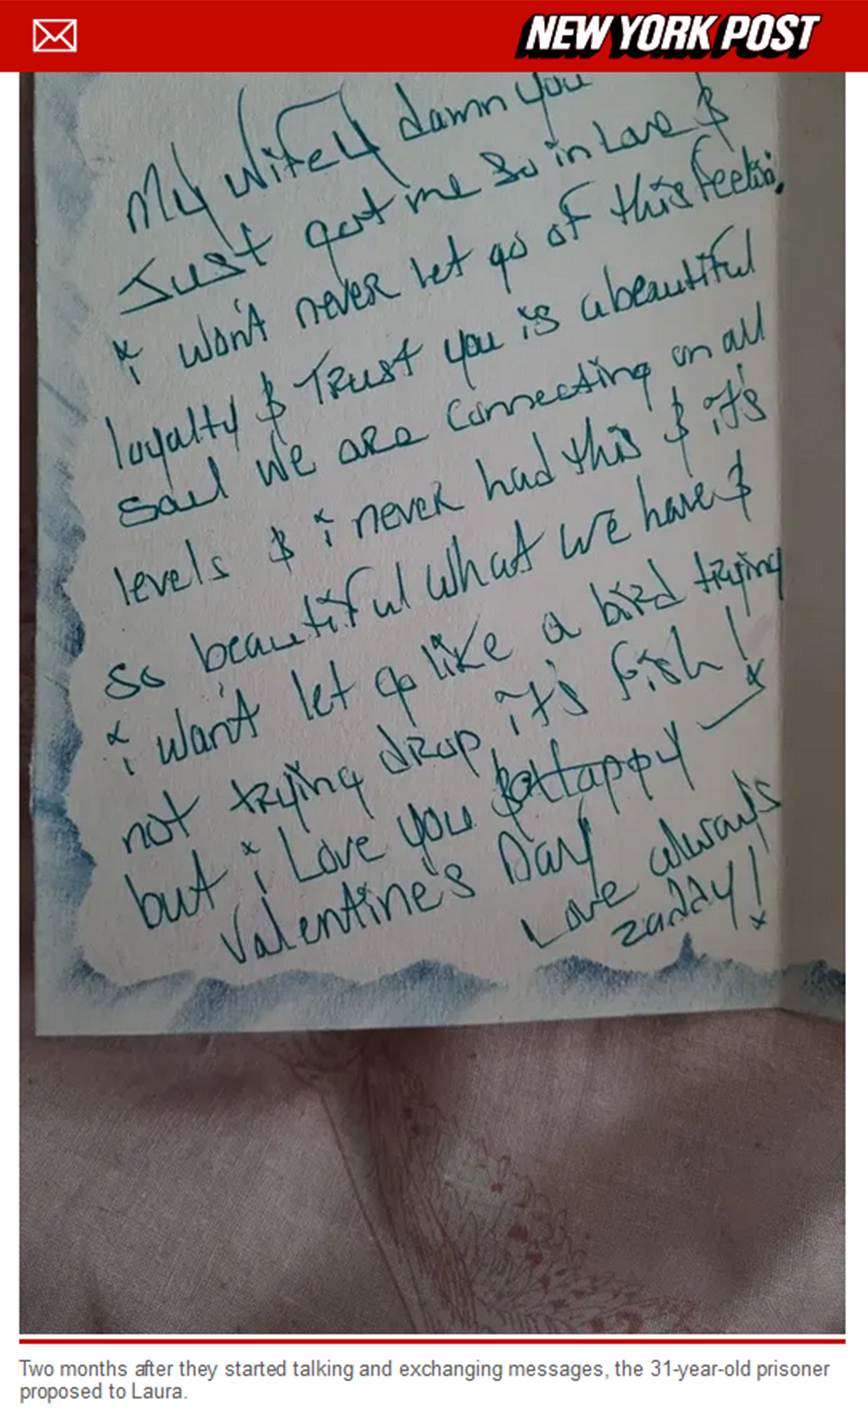 NEW YORK POST
My wifey damn you
Just got me so in Love &
i won't never let go of this feelin.
loyalty & Trust you is a beautiful
soul we are connecting on all
levels & i never had this & it's
so beautiful what we have &
i wan't let go like a bird trying
not trying drop it's fish!
but i Love you Happy
Valentine's Day
Love always
zaddy!
Two months after they started talking and exchanging messages, the 31-year-old prisoner
proposed to Laura.